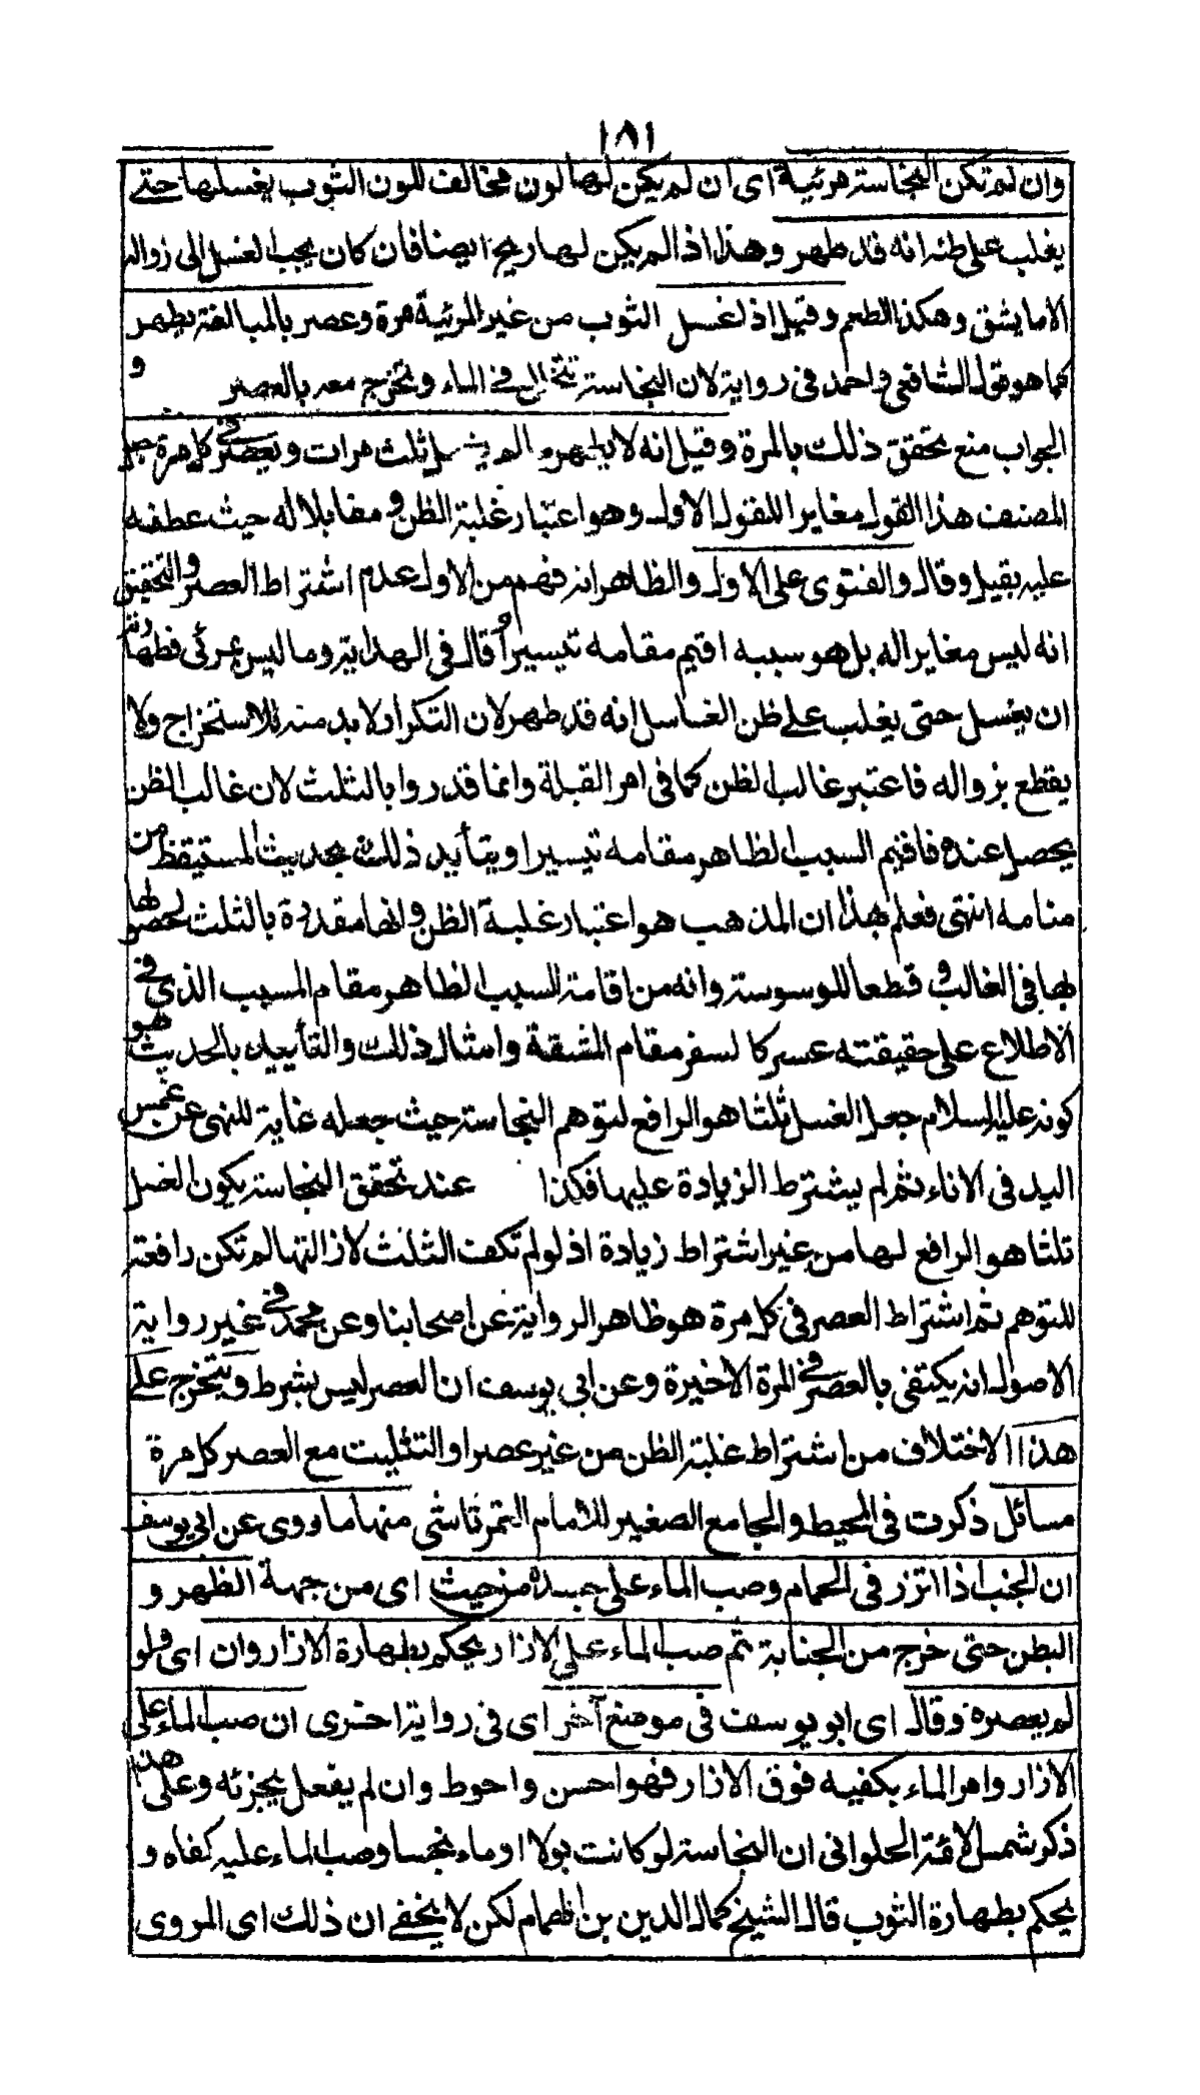 ١٨١
وان لم تكن النجاسة مرئية اى ان لم يكن لها لون مخالف للون الثوب يغسلها حتے
يغلب على ظنه انه قد طهر وهذا اذا لم يكن لها ريح ايضا فان كان يجب الغسل الى زواله
الا ما يشق وهكذا الطعم وقيل اذا غسل الثوب من غير المرئية مرة وعصر بالمبالغة يطهر
كما هو قول الشافعي واحمد فى رواية لان النجاسة تتخلل فى الماء وتخرج معه بالعصر و
الجواب منع تحقق ذلك بالمرة وقيل انه لا يطهر ما لم يغسل ثلث مرات ويعصر فى كل مرة جعل
المصنف هذا القول مغايرا للقول الاول وهو اعتبار غلبة الظن و مقابلا له حيث عطفه
عليه بقيل وقال والفتوى على الاول والظاهر انه فهم من الاول عدم اشتراط العصر والتحقيق
انه ليس مغايرا له بل هو سببه اقيم مقامه تيسيرا قال فى الهداية وما ليس بمرئى فطهارته
ان يغسل حتى يغلب على ظن الغاسل انه قد طهر لان التكرار لا بد منه للاستخراج ولا
يقطع بزواله فاعتبر غالب الظن كما فى امر القبلة وانما قدروا بالثلث لان غالب الظن
يحصل عنده فاقيم السبب الظاهر مقامه تيسيرا ويتأيد ذلك بحديث المستيقظ من
منامه انتهى فعلم بهذا ان المذهب هو اعتبار غلبة الظن وانها مقدرة بالثلث لحصولها
بها فى الغالب و قطعا للوسوسة وانه من اقامة السبب الظاهر مقام المسبب الذى فى
الاطلاع على حقيقته عسر كالسفر مقام المشقة وامثال ذلك والتأييد بالحديث هو
كونه عليه السلام جعل الغسل ثلثا هو الرافع لتوهم النجاسة حيث جعله غاية للنهى عن غمس
اليد فى الاناء ثم لم يشترط الزيادة عليها فكذا عند تحقق النجاسة يكون الغسل
ثلثا هو الرافع لها من غير اشتراط زيادة اذ لو لم تكف الثلث لازالتها لم تكن رافعة
للتوهم ثم اشتراط العصر فى كل مرة هو ظاهر الرواية عن اصحابنا وعن محمد فى غير رواية
الاصول انه يكتفى بالعصر فى المرة الاخيرة وعن ابى يوسف ان العصر ليس بشرط ويتخرج على
هذا الاختلاف من اشتراط غلبة الظن من غير عصر او التثليث مع العصر كل مرة
مسائل ذكرت فى المحيط والجامع الصغير للامام التمرتاشى منها ما روى عن ابى يوسف
ان الجنب اذا اتزر فى الحمام وصب الماء على جسده من حيث اى من جهة الظهر و
البطن حتى خرج من الجنابة ثم صب الماء على الازار يحكم بطهارة الازار وان اى ولو
لم يعصره وقال اى ابو يوسف فى موضع آخر اى فى رواية اخرى ان صب الماء على
الازار وامر الماء بكفيه فوق الازار فهو احسن واحوط وان لم يفعل يجزئه وعلى هذا
ذكر شمس الائمة الحلوانى ان النجاسة لو كانت بولا او ماء نجسا وصب الماء عليه كفاه و
يحكم بطهارة الثوب قال الشيخ كمال الدين بن الهمام لكن لا يخفى ان ذلك اى المروى